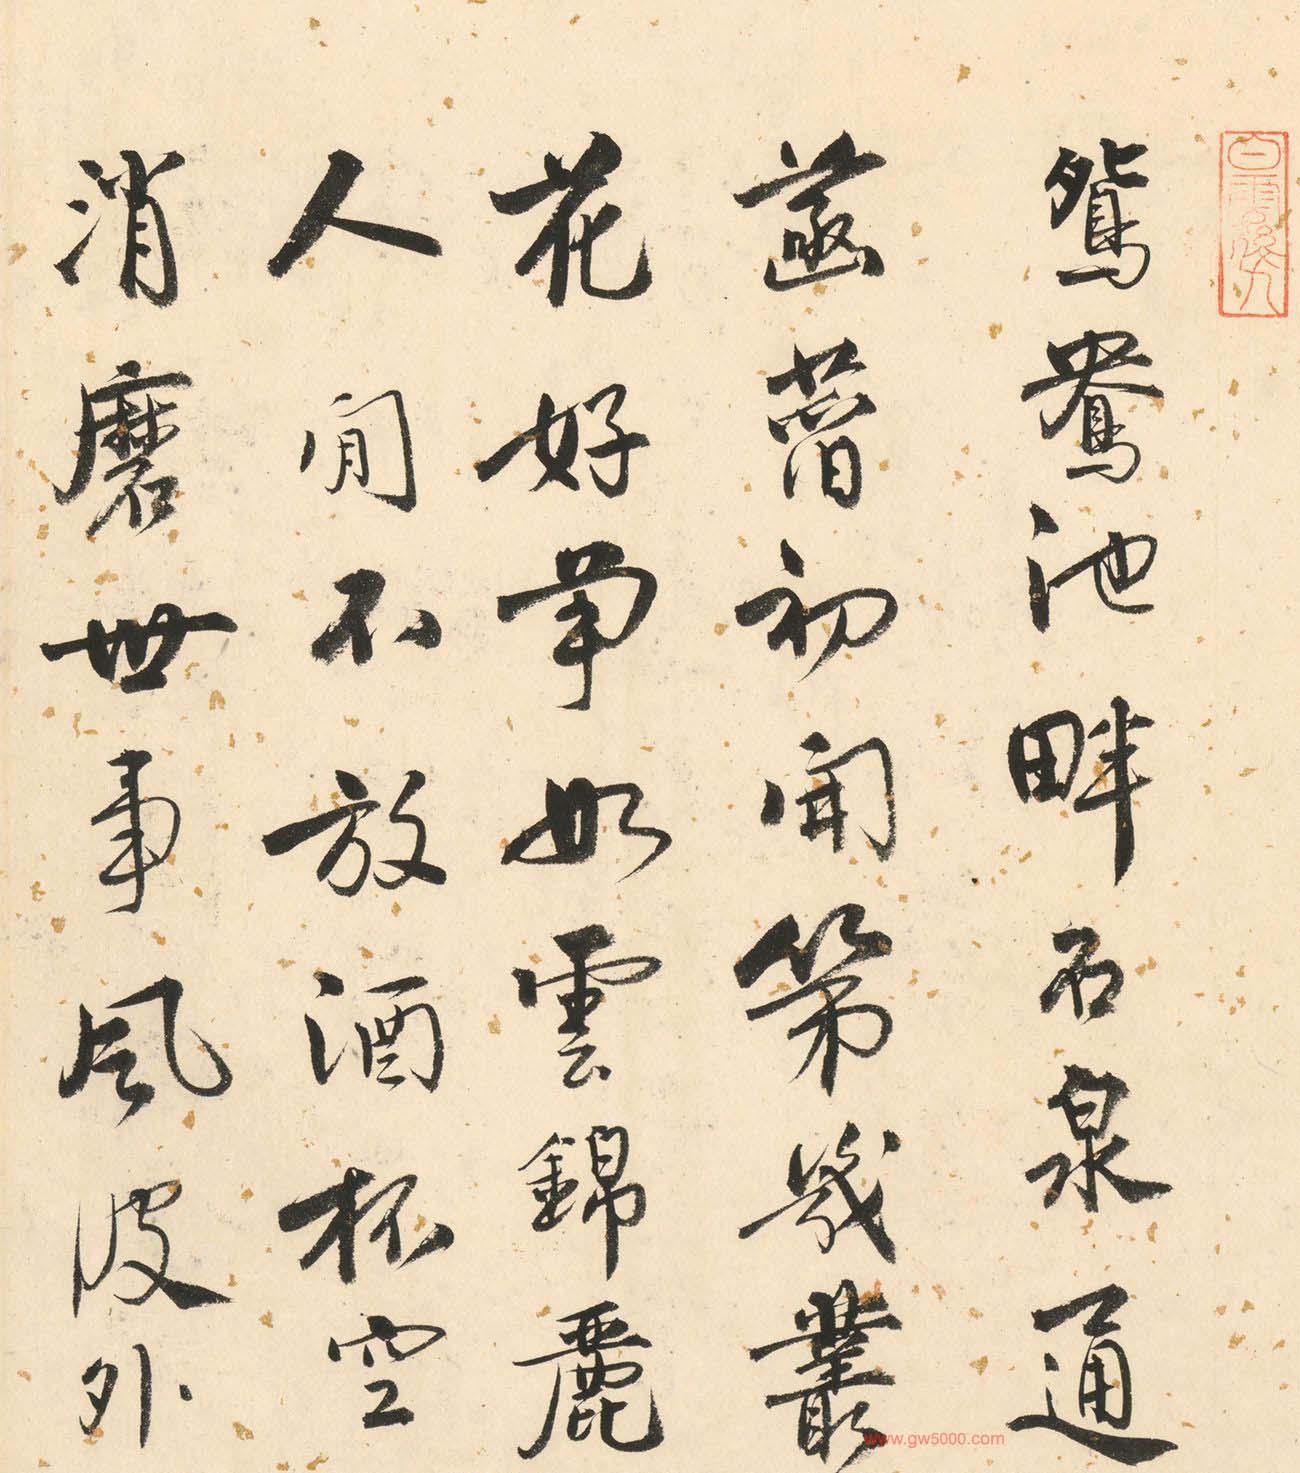 鴛鴦池畔石泉通
菡萏初開第幾叢
花好爭如雲錦麗
人間不放酒杯空
消磨世事風波外
www.gw5000.com